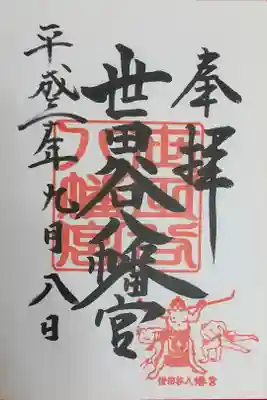 奉拝
世田谷八幡宮
平成 年九月八日
世田谷八幡宮
世田谷八幡宮